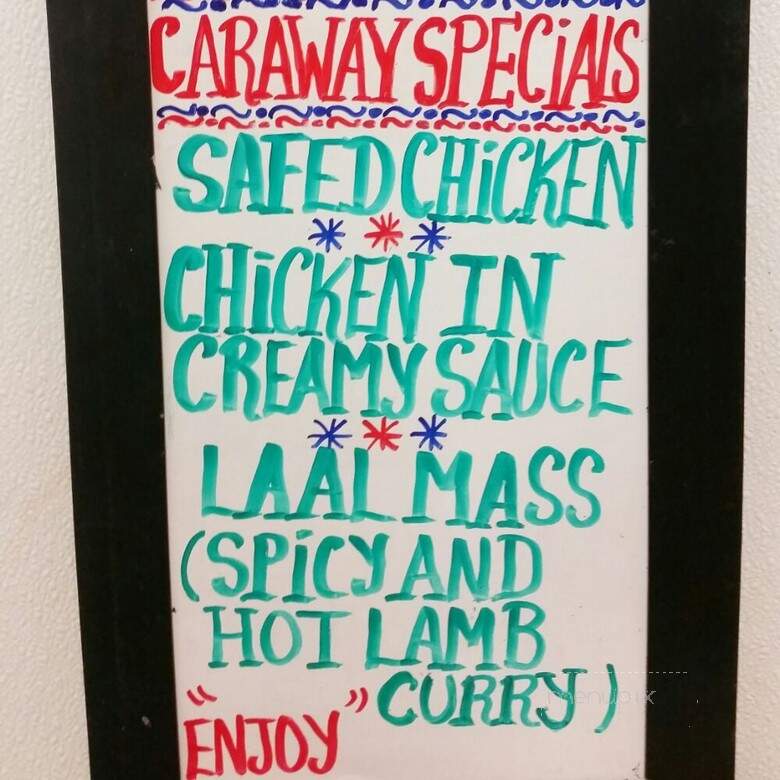 CARAWAY SPECiAlS
SAFED CHiCKEN
* * *
CHiCKEN IN
CREAMY SAUCE
* * *
LAAL MASS
(SPiCY AND
HOT LAMB
CURRY)
"ENJOY"
menupix